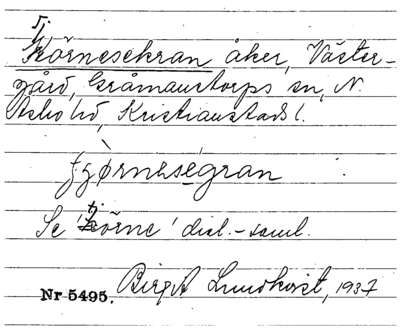 Tj
Körnesekran åker, Väster-
gård, Gråmanstorps sn, N.
Åsbo hd, Kristianstads l.
Se 'tjörne' dial.-saml.
Birgit Lundkvist, 1937
Nr 5495.